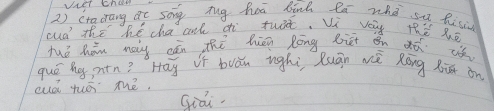 2) cta đang đc sống trg hòa bình là nhờ sự hi sinh
của thế hệ cha anh đi trước. Vì vậy thế hệ
trẻ hôm nay cần thể hiện lòng biết ơn đối với
quê hg, ntn? Hãy vt bvăn nghị luận về lòng biết ơn
của tuổi trẻ.
Giải